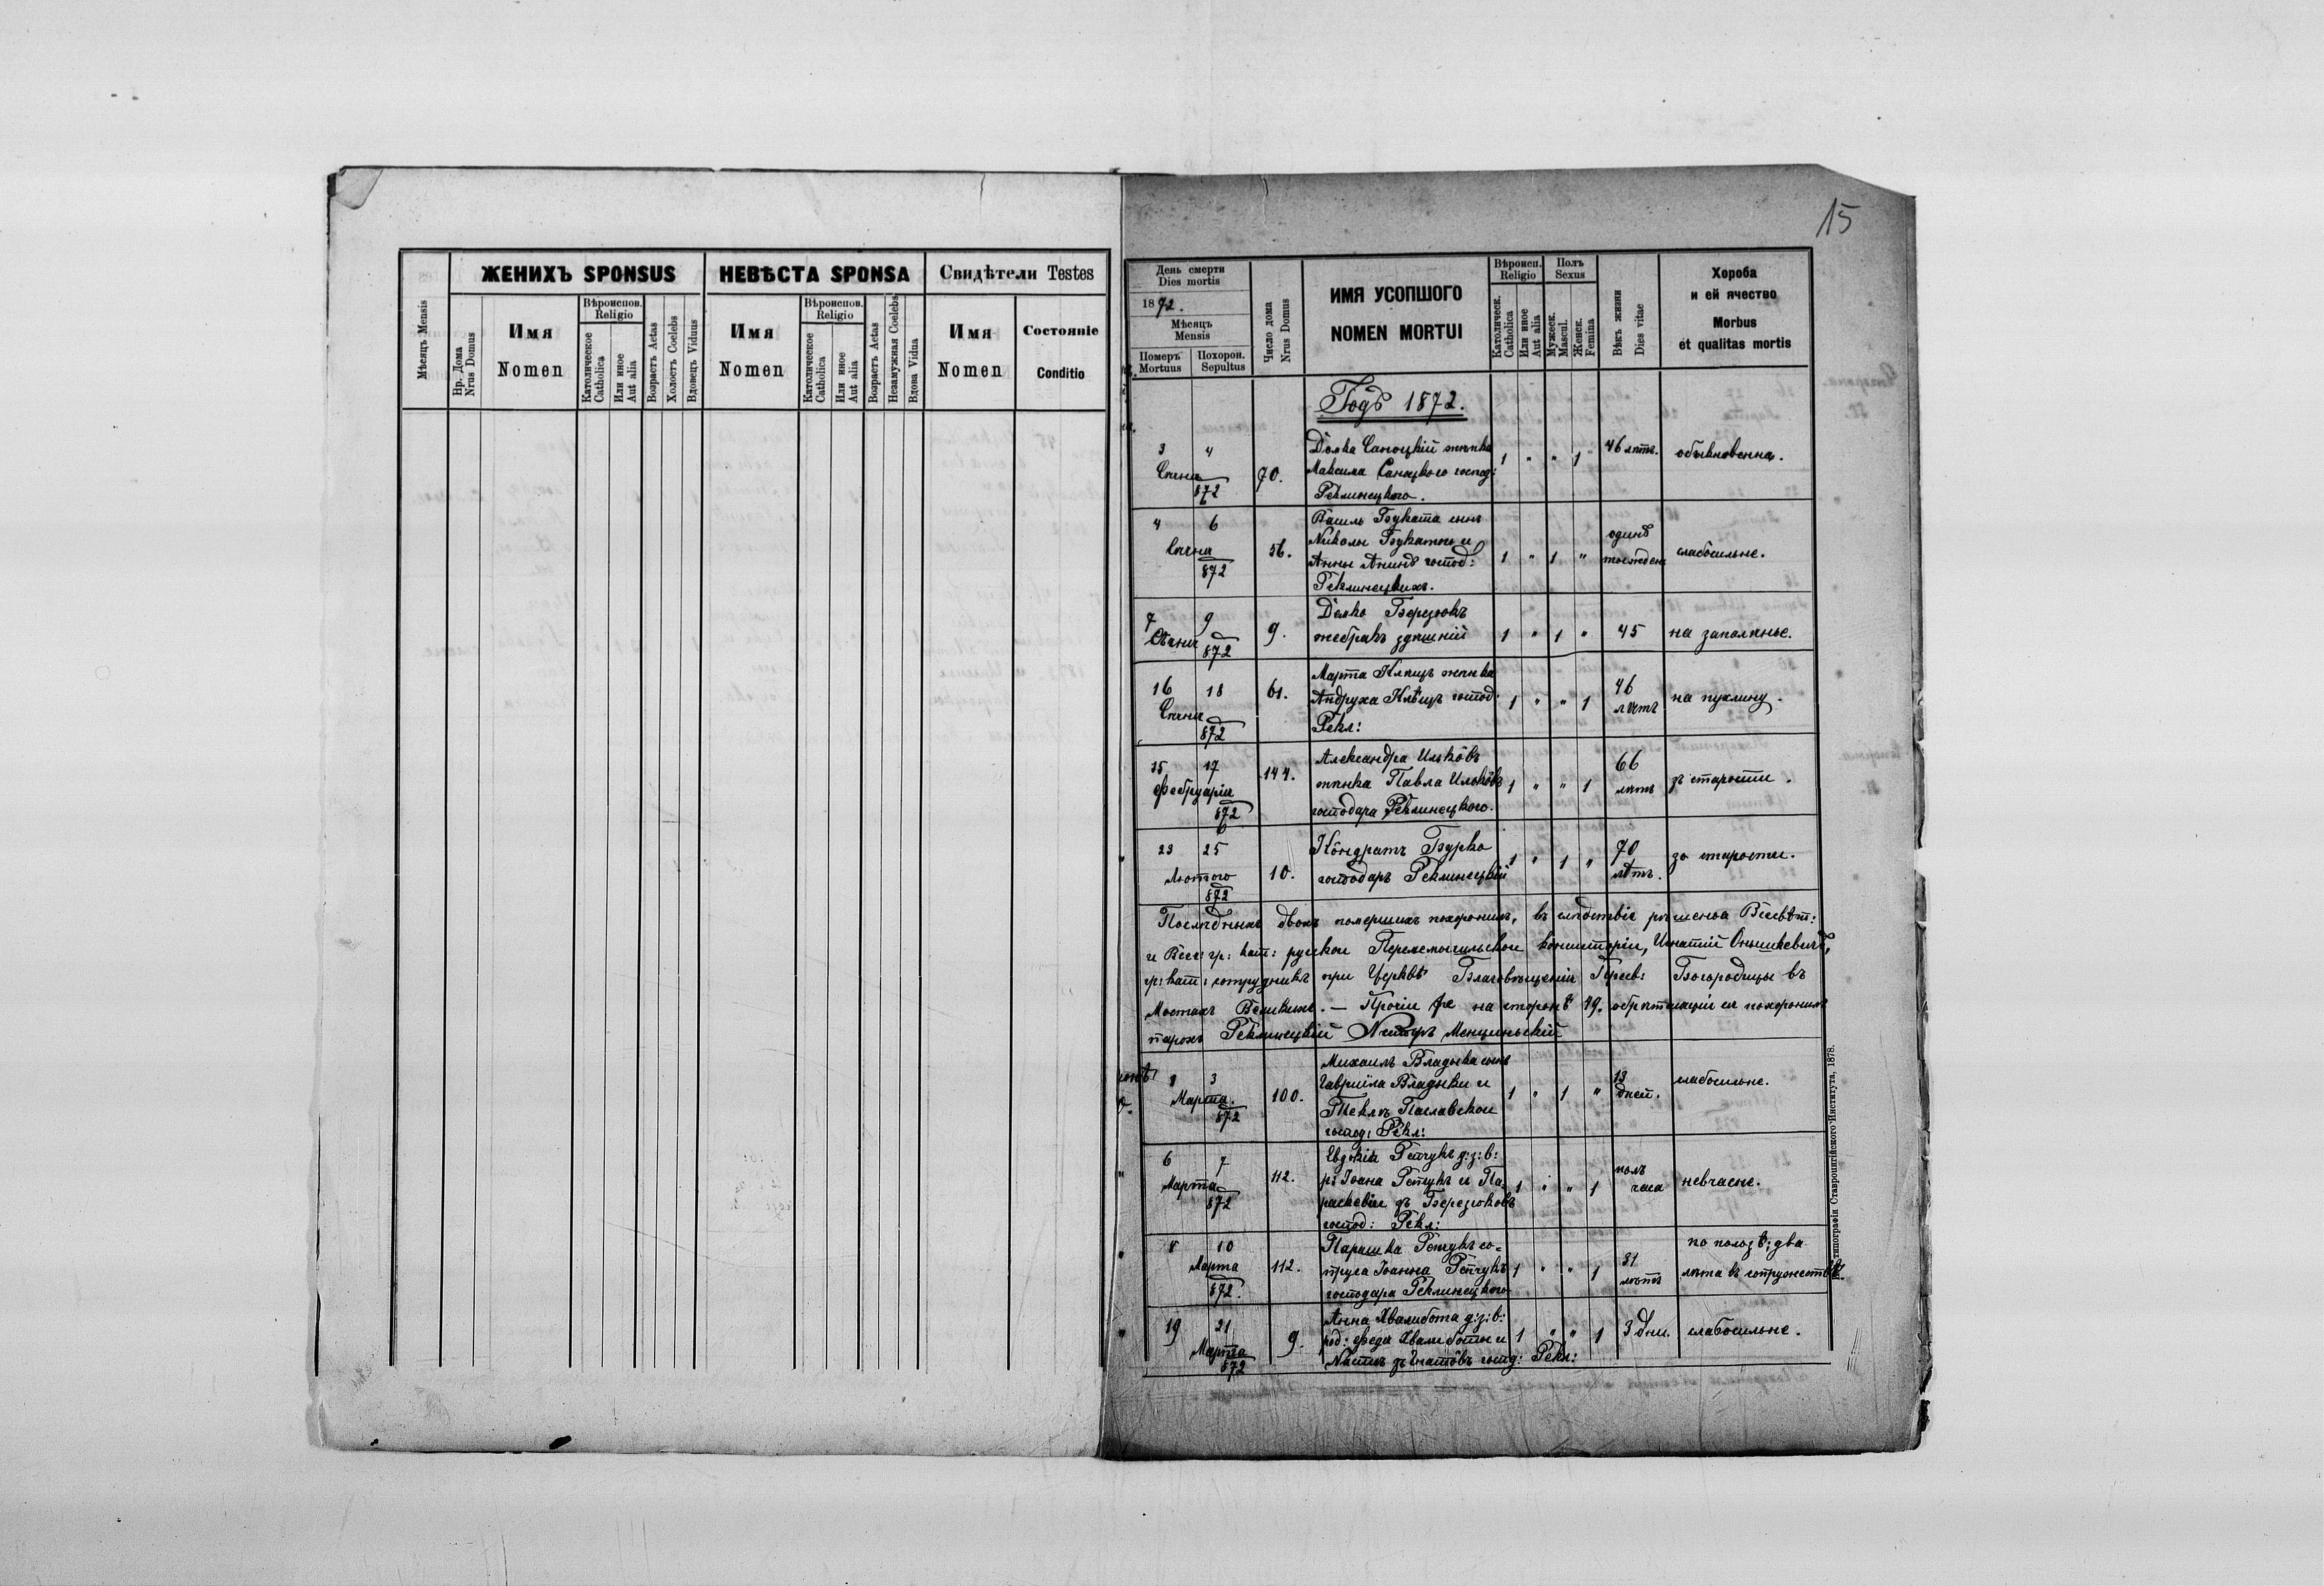 15
ЖЕНИХЪ SPONSUS
НЕВѢСТА SPONSA
Свидѣтели Testes
Мѣсяцъ Mensis
Нр. Дома
Nrus Domus
Имя
Nomen
Вѣроиспов.
Religio
Католическое
Catholica
Или иное
Aut alia
Возрастъ Aetas
Холостъ Coelebs
Вдовецъ Viduus
Имя
Nomen
Вѣроиспов.
Religio
Католическое
Catholica
Или иное
Aut alia
Возрастъ Aetas
Незамужная Coelebs
Вдова Vidua
Имя
Nomen
Состоянiе
Conditio
День смерти
Dies mortis
1872.
Мѣсяцъ
Mensis
Померъ
Mortuus
Похорон.
Sepultus
Число дома
Nrus Domus
ИМЯ УСОПШОГО
NOMEN MORTUI
Вѣроисп.
Religio
Католическ.
Catholica
Или иное
Aut alia
Полъ
Sexus
Мужеск.
Mascul.
Женск.
Femina
Вѣкъ жизни
Dies vitae
Хороба
и ей ячество
Morbus
et qualitas mortis
Годъ 1872.
3 4
872
70.
Саноцкій жѣнка
Максима Саноцкого господ:
Реклинецкого.
1 " " 1
46 лѣтъ.
обыкновенна.
4 6
872
56.
Василь Буката сынъ
Николы Букаты и
Анны господ:
Реклинецкихъ.
1 " 1 "
одинъ
тыждень
слабосильне.
7 9
Сѣчня
872
9.
Березюкъ
жебракъ здѣшній
1 " 1 "
45
на запаленье.
16 18
872
61.
Марта Клѣщъ жѣнка
Андруха Клѣщъ господ:
Рекл:
1 " " 1
46
лѣтъ
на пухлину.
15 17
Фебруарія
872
144.
Александра Ильковъ
жѣнка Павла Ильковъ
господара Реклинецкого.
1 " " 1
66
лѣтъ
зъ старости.
23 25
Лютого
872
10.
Кондратъ Бурко
господаръ Реклинецкій
1 " 1 "
70
лѣтъ.
зо старости.
Послѣдныхъ двохъ помершихъ похоронилъ, въ слѣдствіе рѣшенья Всесвѣт:
и Всеч: гр: кат: рускои Перемышльскои консисторіи, Игнатій Онышкевичъ,
гр: кат: сотрудникъ при Церквѣ Благовѣщенія Пресв: Богородицы въ
Мостахъ Великихъ. — Прочіи же на сторонѣ 49. обрѣтающіи ся похоронилъ
парохъ Реклинецкій Несторъ Менциньскій
1 3
Марта.
872
100.
Михаилъ Владыка сынъ
Гавриіла Владыки и
Теклѣ Паславскои
господ: Рекл:
1 " 1 "
13
дней.
слабосильне.
6 7
Марта
872
112.
Евдокія Репчукъ д:з:в:
р: Іоана Репчукъ и Па-
раскевіи зъ Березюковъ
господ: Рекл:
1 " " 1
полъ
часа
невчасне.
8 10
Марта
872.
112.
Парашка Репчукъ со-
пруга Іоанна Репчукъ
господара Реклинецкого
1 " " 1
31
лѣтъ
по пологѣ; два
лѣта въ сопружествѣ.
19 21
Марта
872
9.
Анна Хвалибота д:з:в:
род: Федя Хвалиботы и
зъ господ: Рекл:
1 " " 1
3 дни.
слабосильне.
типографіи Ставропигійского Института, 1878.